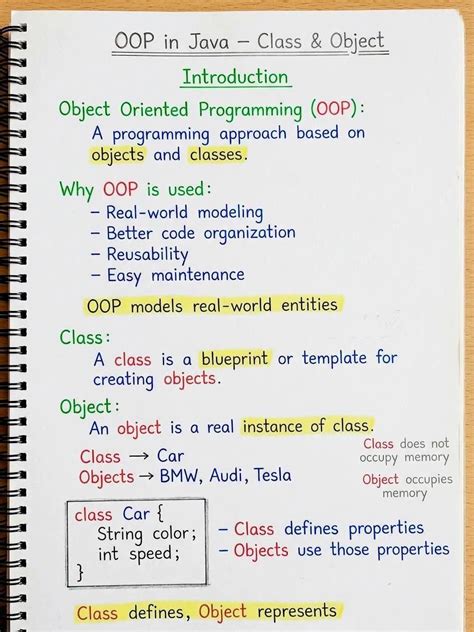 OOP in Java – Class & Object
Introduction
Object Oriented Programming (OOP):
A programming approach based on
objects and classes.
Why OOP is used:
– Real-world modeling
– Better code organization
– Reusability
– Easy maintenance
OOP models real-world entities
Class:
A class is a blueprint or template for
creating objects.
Object:
An object is a real instance of class.
Class → Car
Objects → BMW, Audi, Tesla
Class does not
occupy memory
Object occupies
memory
class Car {
String color;
int speed;
}
– Class defines properties
– Objects use those properties
Class defines, Object represents